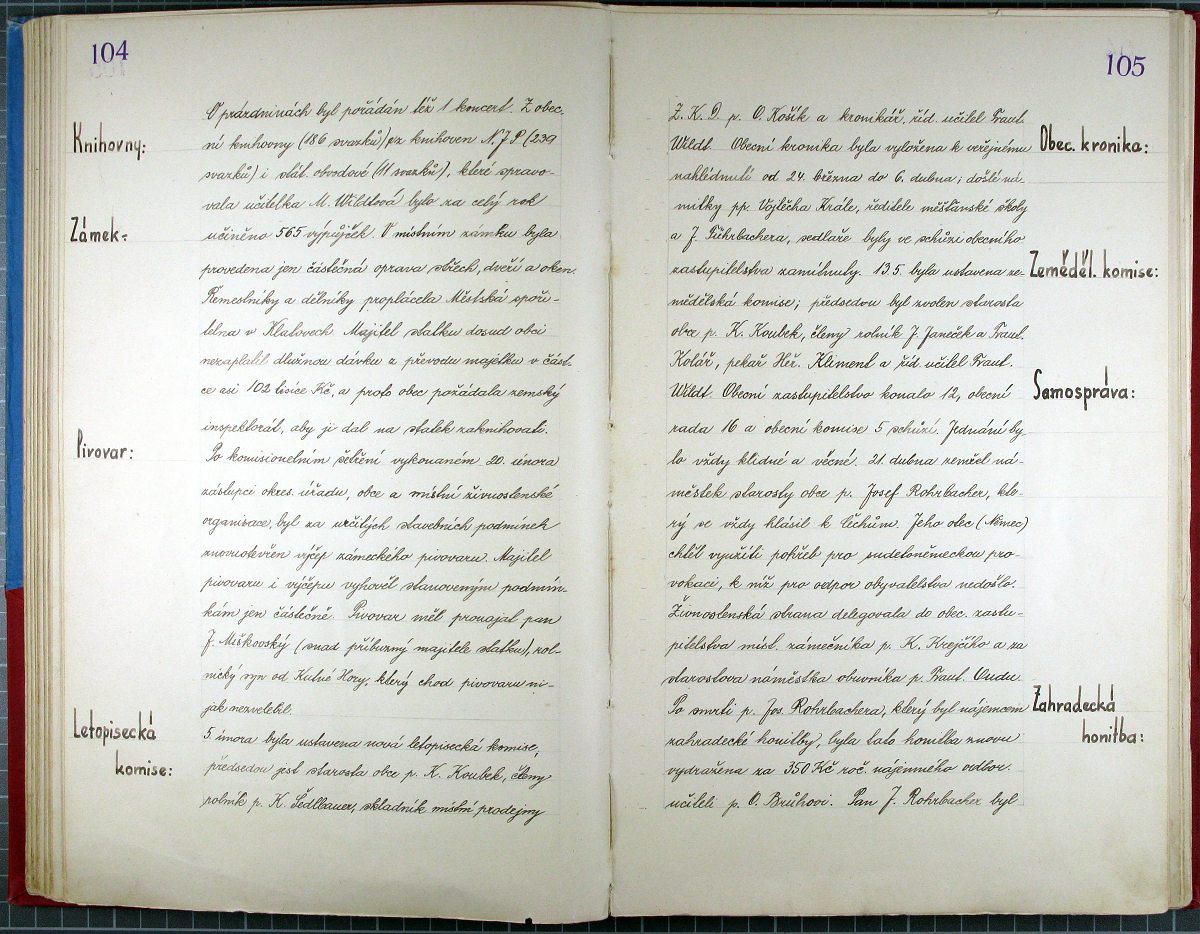 104
O prázdninách byl pořádán též 1 koncert. Z obec-
Knihovny:
ní knihovny (186 svazků), z knihoven N. J. P. (239
svazků) i stát. obvodové (11 svazků), které spravo-
vala učitelka M. Wildtová bylo za celý rok
Zámek:
učiněno 565 výpůjček. V místním zámku byla
provedena jen částečná oprava střech, dveří a oken.
Řemeslníky a dělníky proplácela Městská spoři-
telna v Klatovech. Majitel statku dosud obci
nezaplatil dlužnou dávku z převodu majetku v část-
ce asi 102 tisíce Kč, a proto obec požádala zemský
inspektorát, aby ji dal na statek zaknihovati.
Pivovar:
Po komisionelním šetření vykonaném 20. února
zástupci okres. úřadu, obce a místní živnostenské
organisace, byl za určitých stavebních podmínek
znovuotevřen výčep zámeckého pivovaru. Majitel
pivovaru i výčepu vyhověl stanoveným podmín-
kám jen částečně. Pivovar měl pronajat pan
J. Miškovský (snad příbuzný majitele statku), rol-
nický syn od Kutné Hory, který chod pivovaru ni-
jak nezvelebil.
Letopisecká
komise:
5 února byla ustavena nová letopisecká komise,
předsedou jest starosta obce p. K. Koubek, členy
rolník p. K. Sedlbauer, skladník místní prodejny
105
Z. K. D. p. O. Košík a kronikář, říd. učitel Frant.
Obec. kronika:
Wildt. Obecní kronika byla vyložena k veřejnému
nahlédnutí od 24. března do 6. dubna; došlé ná-
mitky pp. Vojtěcha Krále, ředitele měšťanské školy
a J. Führbachera, sedláře byly ve schůzi obecního
Zeměděl. komise:
zastupitelstva zamítnuty. 13.5. byla ustavena ze-
mědělská komise; předsedou byl zvolen starosta
obce p. K. Koubek, členy rolník J. Janeček a Frant.
Kolář, pekař Heř. Kliment a říd. učitel Frant.
Samospráva:
Wildt. Obecní zastupitelstvo konalo 12, obecní
rada 16 a obecní komise 5 schůzí. Jednání by-
lo vždy klidné a věcné. 21. dubna zemřel ná-
městek starosty obce p. Josef Rohrbacher, kte-
rý se vždy hlásil k Čechům. Jeho otec (Němec)
chtěl využíti pohřeb pro sudetoněmeckou pro-
vokaci, k níž pro odpor obyvatelstva nedošlo.
Živnostenská strana delegovala do obec. zastu-
pitelstva míst. zámečníka p. K. Krejčího a za
starostova náměstka obuvníka p. Frant. Oudu.
Zahradecká
honitba:
Po smrti p. Jos. Rohrbachera, který byl nájemcem
zahradecké honitby, byla tato honitba znovu
vydražena za 350 Kč roč. nájemného odbor.
učiteli p. O. Brůhovi. Pan J. Rohrbacher byl